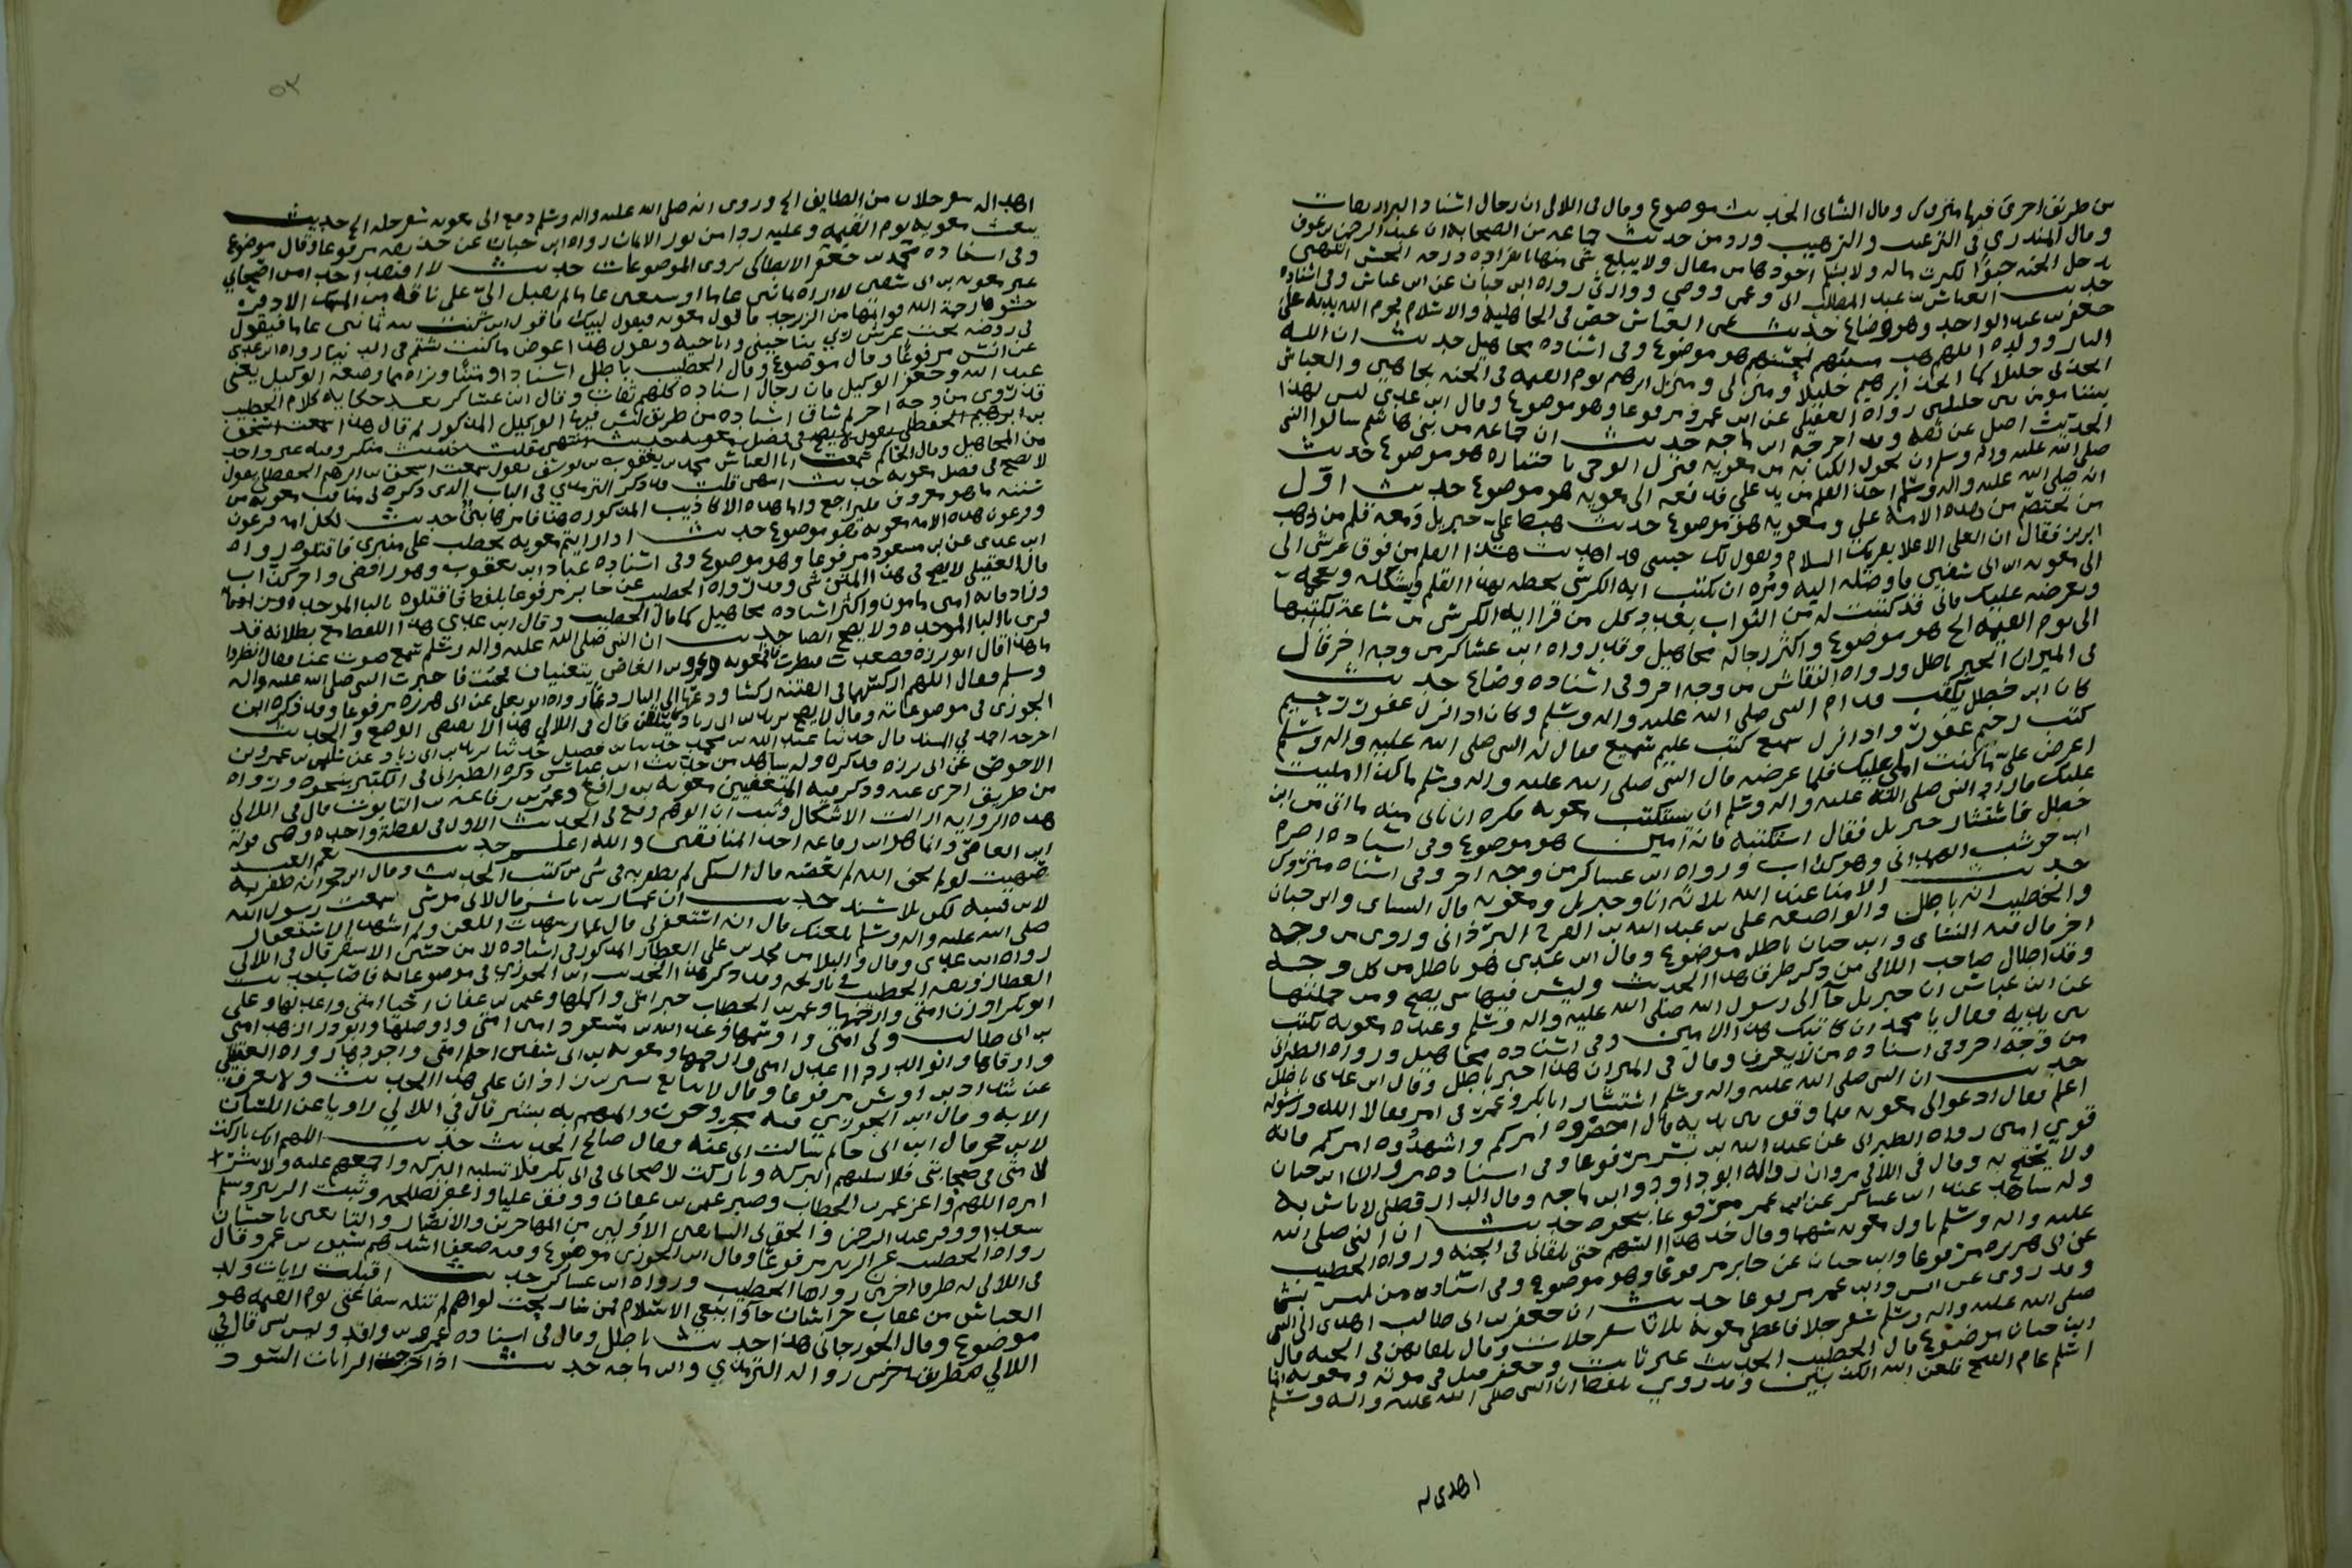 من طريق اخرى فيها متروك وقال النسائي الحديث موضوع وقال في اللالي ان رجال اسناد البزار ثقات
وقال المنذري في الترغيب والترهيب ورد من حديث جماعه من الصحابه ان عبد الرحمن بن عوف
يدخل الجنه حبوًا لكثرت ماله ولا يسلم اجودها من مقال ولا يبلغ شي منها بانفراده درجه الحسن انتهى
حديث العباس بن عبد المطلب ابي وعمي ووصي ووارثي رواه ابن حبان عن ابن عباس وفي اسناده
جعفر بن عبد الواحد وهو وضاع حديث عمي العباس حصن في الجاهليه والاسلام حرم الله بدنه على
النار وولده اللهم هب مسيئهم لمحسنهم هو موضوع وفي اسناده مجاهيل حديث ان الله
اتخذني خليلا كما اتخذ ابرهيم خليلا ومنزلي ومنزل ابرهيم يوم القيمه في الجنه تجاهين والعباس
بيننا مومن بين خليلين رواه العقيلي عن ابن عمرو مرفوعا وهو موضوع وقال ابن عدي ليس لهذا
الحديث اصل عن ثقه وقد اخرجه ابن ماجه حديث ان جماعه من بني هاشم سالوا النبي
صلى الله عليه واله وسلم ان يحول الكتابه من معويه فنزل الوحي باختياره هو موضوع حديث
انه صلى الله عليه واله وسلم اخذ القلم من يد علي فدفعه الى معويه هو موضوع حديث اول
من يختصم من هذه الامه علي ومعويه هو موضوع حديث هبط علي جبريل ومعه قلم من ذهب
ابريز فقال ان العلي الاعلا يقريك السلام ويقول لك حبيبي قد اهديت هذا القلم من فوق عرشي الى
الى معويه بن ابي سفين فاوصله اليه ومره ان يكتب ايه الكرسي بخطه بهذا القلم ويشكله ويعجمه
ويعرضه عليك فاني قد كتبت له من الثواب بعدد كل من قرا ايه الكرسي من ساعة يكتبها
الى يوم القيمه الخ هو موضوع واكثر رجاله مجاهيل وقد رواه ابن عساكر من وجه اخر قال
في الميزان الخبر باطل ورواه النقاش من وجه اخر وفي اسناده وضاع حديث
كان ابن خطل يكتب قدام النبي صلى الله عليه واله وسلم وكان اذا انزل غفور رحيم
كتب رحيم غفور واذا انزل سميع كتب عليم سميع فقال له النبي صلى الله عليه واله وسلم
اعرض علي ما كنت املي عليك فلما عرضه قال النبي صلى الله عليه واله وسلم ما كذا امليت
عليك قال اراد النبي صلى الله عليه واله وسلم ان يستكتب معويه فكره ان ياتي منه ما اتى من ابن
خطل فاستشار جبريل فقال استكتبه فانه امين هو موضوع وفي اسناده اصرم
ابن حوشب الهمداني وهو كذاب ورواه ابن عساكر من وجه اخر وفي اسناده متروك
حديث الامنا عند الله ثلاثه انا وجبريل ومعويه قال النساي وابن حبان
والخطيب انه باطل والواضعه علي بن عبد الله بن الفرج البرذاني وروي من وجه
اخر قال فيه النساي وابن حبان باطل موضوع وقال ابن عدي هو باطل من كل وجه
وقد اطال صاحب اللالي من ذكر طرق هذا الحديث وليس فيها من يصح ومن جملتها
عن ابن عباس ان جبريل جا الى رسول الله صلى الله عليه واله وسلم وعنده معويه يكتب
بين يديه فقال يا محمد ان كاتبك هذا الامين وفي اسناده مجاهيل ورواه الطبراني
من وجه اخر وفي اسناده من لا يعرف وقال في الميزان هذا خبر باطل وقال ابن عدي باطل
حديث ان النبي صلى الله عليه واله وسلم استشار ابا بكر وعمر في امر فقالا الله ورسوله
اعلم فقال ادعوا لي معويه فلما وقف بين يديه قال احضروه امركم واشهدوه امركم فانه
قوي امين رواه الطبراني عن عبد الله بن بسر مرفوعا وفي اسناده مروان ابن حبان
ولا يحتج به وقال في اللالي مروان روى له ابو داود وابن ماجه وقال الدارقطني لاباس به
وله شاهد عند ابن عساكر عن ابن عمر مرفوعا بنحوه حديث ان النبي صلى الله
عليه واله وسلم ناول معويه سهما وقال خذ هذا السهم حتى تلقاني في الجنه ورواه الخطيب
عن ابي هريره مرفوعا وابن حبان عن جابر مرفوعا وهو موضوع وفي اسناده من ليس بشي
وقد روي عن انس وابن عمر مرفوعا حديث ان جعفر بن ابي طالب اهدى الى النبي
صلى الله عليه واله وسلم سفرجلا فاعطى معويه ثلاثا سفرجلات وقال تلقاني بهن في الجنه قال
ابن حبان موضوع قال الخطيب الحديث غير ثابت وجعفر قتل في موته ومعويه انما
اسلم عام الفتح فلعن الله الكذابين وقد روي بلفظ ان النبي صلى الله عليه واله وسلم
اهدي له
٥٣
اهدي اليه سفرجلات من الطايف الخ وروي انه صلى الله عليه واله وسلم دفع الى معويه سفرجله الخ حديث
يبعث معويه يوم القيمه وعليه ردا من نور الايمان رواه ابن حبان عن حذيفه مرفوعا وقال موضوع
وفي اسناده جعفر بن محمد الانطاكي يروي الموضوعات حديث لا افتقد احد من اصحابي
غير معويه بن ابي سفين لا اراه ثمانين عاما او سبعين عاما ثم يقبل الي على ناقه من المسك الاذفر
حشوها رحمة الله قوايمها من الزبرجد فاقول معويه فيقول لبيك فاقول اين كنت من ثمانين عاما فيقول
في روضه تحت عرش ربي يناجيني واناجيه ويقول هذا عوض ما كنت تشتم في الدنيا رواه ابن عدي
عن انس مرفوعا وقال موضوع وقال الخطيب باطل اسنادا ومتنا ونراه مما وضعه الوكيل يعني
عبد الله بن جعفر الوكيل فان رجال اسناده كلهم ثقات وقال ابن عساكر بعد حكايه كلام الخطيب
قد روي من وجه اخر ثم ساق اسناده من طريق ليس فيها الوكيل المذكور ثم قال هذا
لا يصح في فضل معويه حديث انتهى قلت قد ذكر الترمذي في الباب الذي ذكره في مناقب معويه من
سننه ما هو معروف فليراجع واما هذه الاكاذيب المذكوره هنا فامرها بين حديث لكل امه فرعون
وفرعون هذه الامه معويه هو موضوع حديث اذا رايتم معويه يخطب على منبري فاقتلوه رواه
ابن عدي عن ابن مسعود مرفوعا وهو موضوع وفي اسناده عباد ابن يعقوب وهو رافضي واخر كذاب
قال العقيلي لا يصح في هذا المتن شي وقد رواه الخطيب عن جابر مرفوعا بلفظ فاقبلوه بالبا الموحده
وزاد فانه امين مامون واكثر اسناده مجاهيل كما قال الخطيب وقال ابن عدي هذا اللفظ مع بطلانه قد
قري بالبا الموحده ولا يصح ايضا حديث ان النبي صلى الله عليه واله وسلم سمع صوت غنا فقال انظروا
ما هذا قال ابو برزه فصعدت فنظرت فاذا معويه وعمرو بن العاص يتغنيان فجئت فاخبرت النبي صلى الله عليه واله
وسلم فقال اللهم اركسهما في الفتنه ركسا ودعهما الى النار دعا رواه ابو يعلى عن ابي برزه مرفوعا وقد ذكره ابن
الجوزي في موضوعاته وقال لا يصح يزيد بن ابي زياد كان يتلقن قال في اللالي هذا لا يقتضي الوضع والحديث
اخرجه احمد في المسند
هذه الروايه ازالت الاشكال وثبت ان الوهم وقع في الحديث الاول في لفظة واحده وهي قوله
ابن العاصي وانما هو ابن رفاعه احد المنافقين والله اعلم حديث نعم العبد
صهيب لو لم يخف الله لم يعصه قال السبكي لم نظفر به في شي من كتب الحديث وقال ابن حجر انه ظفر به
لابن قتيبه لكن بلا سند حديث ان عمار بن ياسر قال لابي موسى سمعت رسول الله
صلى الله عليه واله وسلم يلعنك قال انه استغفر لي قال عمار شهدت اللعن ولم اشهد الاستغفار
رواه ابن عدي وقال والبلا من محمد بن علي العطار المذكور في اسناده لا من حسين الاشقر قال في اللالي
العطار وثقه الخطيب في تاريخه وقد ذكر هذا الحديث ابن الجوزي في موضوعاته فاصاب حديث
ابو بكر اوزن امتي وارحمها وعمر بن الخطاب خير امتي واكملها وعثمن بن عفان احيا امتي واعدلها وعلي
بن ابي طالب ولي امتي واوسمها وعبد الله بن مسعود امين امتي واوصلها وابو ذر ازهد امتي
وارقاها وابو الدردا اعدل امتي وارحمها ومعويه بن ابي سفين احلم امتي واجودها رواه العقيلي
عن شداد بن اوس مرفوعا وقال لا يتابع بشير بن زاذان على هذا الحديث ولا يعرف
الا به وقال ابن الجوزي فيه مجروحون والمتهم به بشير قال في اللالي راويا عن اللسان
لابن حجر قال ابن ابي حاتم سالت ابي عنه فقال صالح الحديث حديث اللهم انك باركت
لامتي في صحابتي فلا تسلبهم البركه وباركت لاصحابي في ابي بكر فلا تسلبه البركه واجمعهم عليه ولا تنشر
امره اللهم واعز عمر بن الخطاب وصبر عثمن بن عفان ووفق عليا واغفر لطلحه وثبت الزبير وسلم
سعدا ووقر عبد الرحمن والحق بي السابقين الاولين من المهاجرين والانصار والتابعين باحسان
رواه الخطيب عن الزبير مرفوعا وقال ابن الجوزي موضوع وفيه ضعفا اشدهم سيف بن عمر وقال
في اللالي له طرق اخرى رواها الخطيب ورواه ابن عساكر حديث اقبلت رايات ولد
العباس من عقاب خراسان جاوا بنعي الاسلام فمن سار تحت لواهم لم تنله شفاعتي يوم القيمه هو
موضوع وقال الجوزجاني هذا حديث باطل وقال في اسناده عمرو بن واقد وليس بشي قال في
اللالي هو من طريق اخرى روى له الترمذي وابن ماجه حديث اذا خرجت الرايات السود